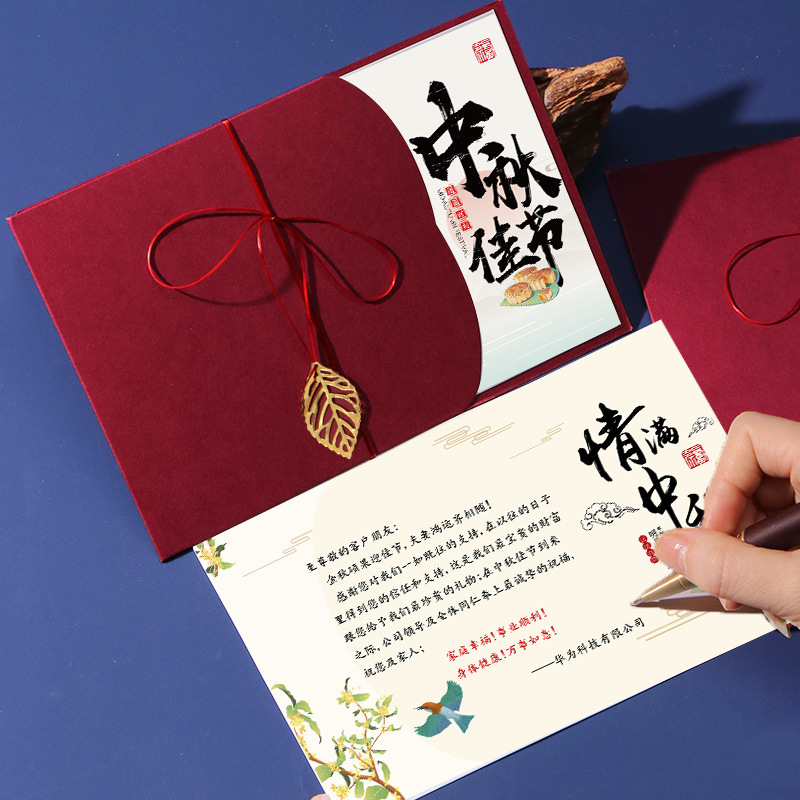 中秋佳节
情满
中
至尊敬的客户朋友:
金秋硕果迎佳节,夫妻鸿运齐相随!
感谢您对我们一如既往的支持,在以往的日子
里得到您的信任和支持,这是我们最宝贵的财富
跟您给予我们最珍贵的礼物;在中秋佳节到来
之际,公司领导及全体同仁奉上最诚挚的祝福,
祝您及家人:
家庭幸福!事业顺利!
身体健康!万事如意!
——华为科技有限公司